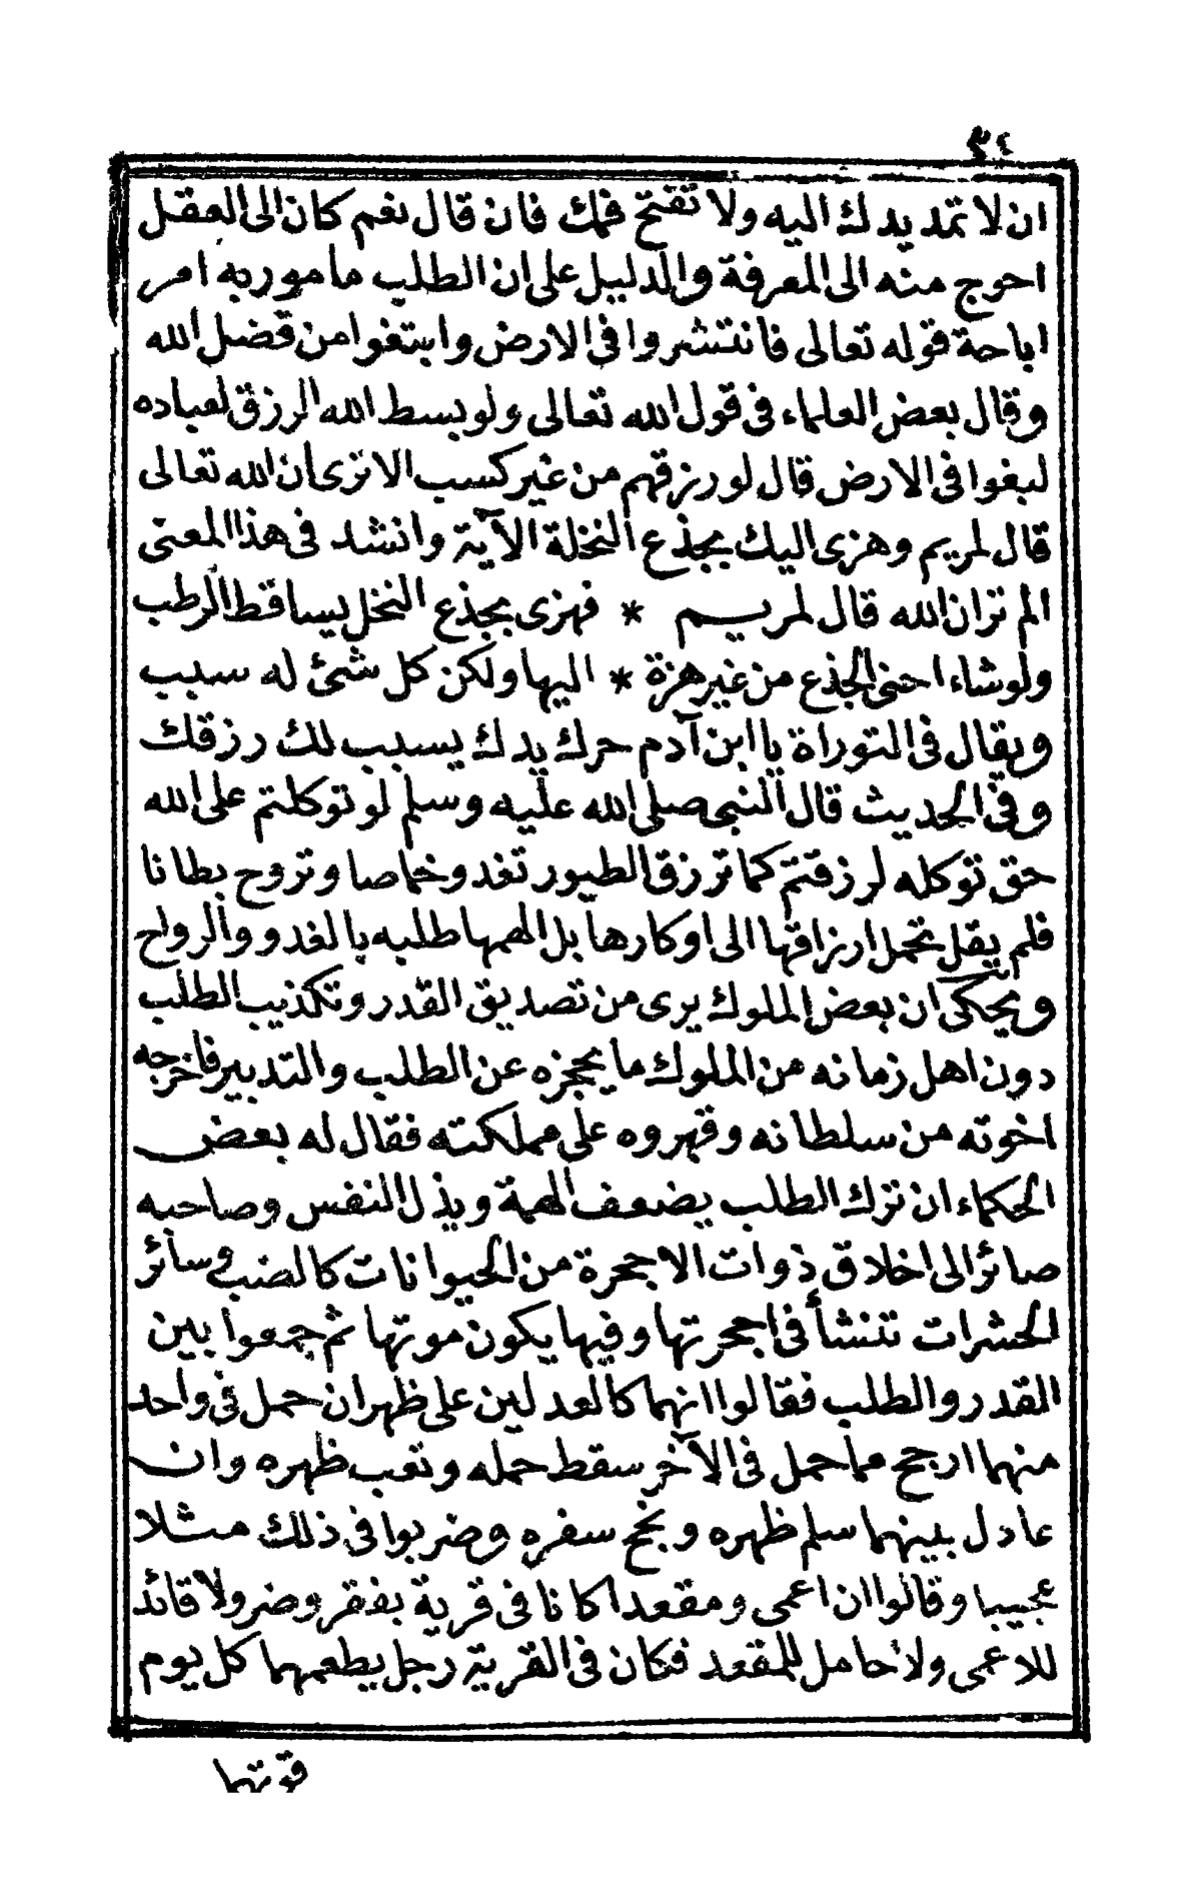 ٣٤
ان لا تمد يدك اليه ولا تفتح فمك فان قال نعم كان الى العقل
احوج منه الى المعرفة والدليل على ان الطلب مأمور به امر
اباحة قوله تعالى فانتشروا فى الارض وابتغوا من فضل الله
وقال بعض العلماء فى قول الله تعالى ولو بسط الله الرزق لعباده
لبغوا فى الارض قال لو رزقهم من غير كسب الا ترى أن الله تعالى
قال لمريم وهزى اليك بجذع النخلة الآية وانشد فى هذا المعنى
الم تر ان الله قال لمريم * فهزى بجذع النخل يساقط الرطب
ولو شاء احنى الجذع من غير هزة * اليها ولكن كل شئ له سبب
ويقال فى التوراة يا ابن آدم حرك يدك يسبب لك رزقك
وفى الحديث قال النبى صلى الله عليه وسلم لو توكلتم على الله
حق توكله لرزقتم كما ترزق الطيور تغدو خماصا وتروح بطانا
فلم يقل تحمل ارزاقها الى اوكارها بل الهمها طلبه بالغدو والرواح
ويحكى ان بعض الملوك يرى من تصديق القدر وتكذيب الطلب
دون اهل زمانه من الملوك ما يحجزه عن الطلب والتدبير فاخرجه
اخوته من سلطانه وقهروه على مملكته فقال له بعض
الحكماء ان ترك الطلب يضعف الهمة ويذل النفس وصاحبه
صائر الى اخلاق ذوات الاجحرة من الحيوانات كالضب وسائر
الحشرات تنشأ فى اجحرتها وفيها يكون موتها ثم جمعوا بين
القدر والطلب فقالوا انهما كالعدلين على ظهر ان حمل فى واحد
منهما ارجح مما حمل فى الآخر سقط حمله وتعب ظهره وان
عادل بينهما سلم ظهره ونجح سفره وضربوا فى ذلك مثلا
عجيبا وقالوا ان اعمى ومقعدا كانا فى قرية بفقر وضر ولا قائد
للاعمى ولا حامل للمقعد فكان فى القرية رجل يطعمهما كل يوم
قوتهما